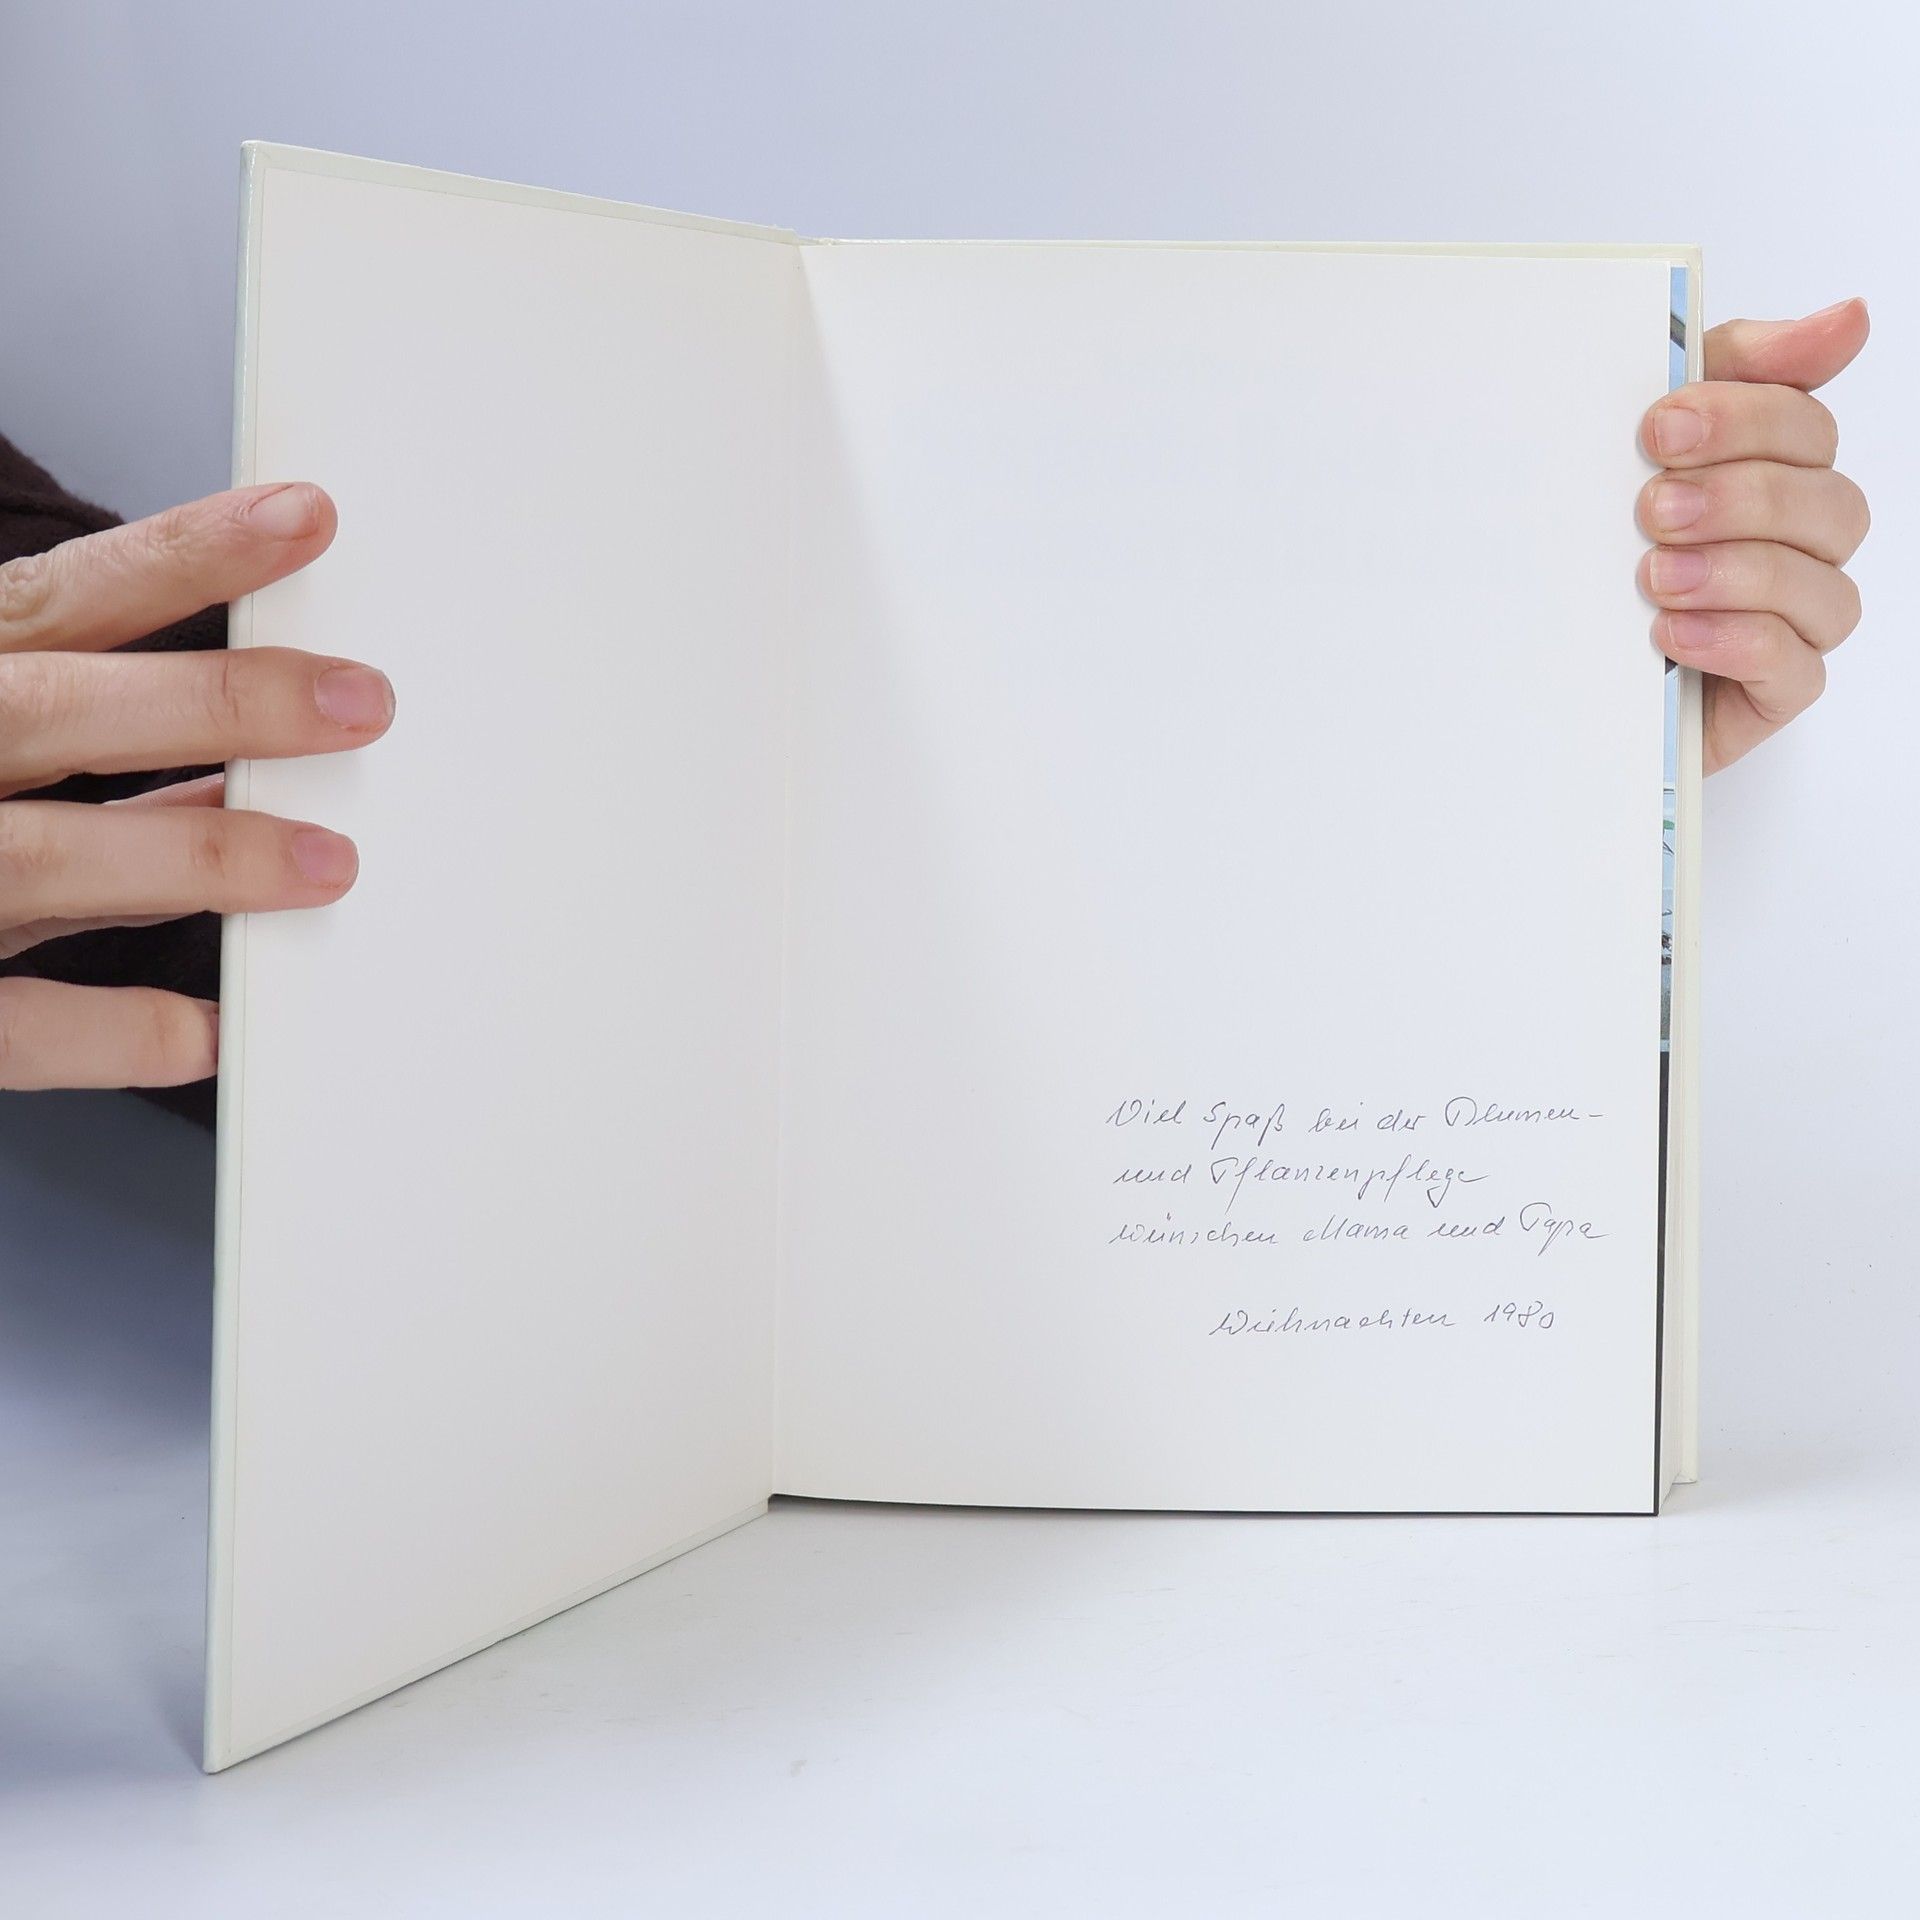 Viel Spaß bei der Blumen-
und Pflanzenpflege
wünschen Mama und Papa
Weihnachten 1980